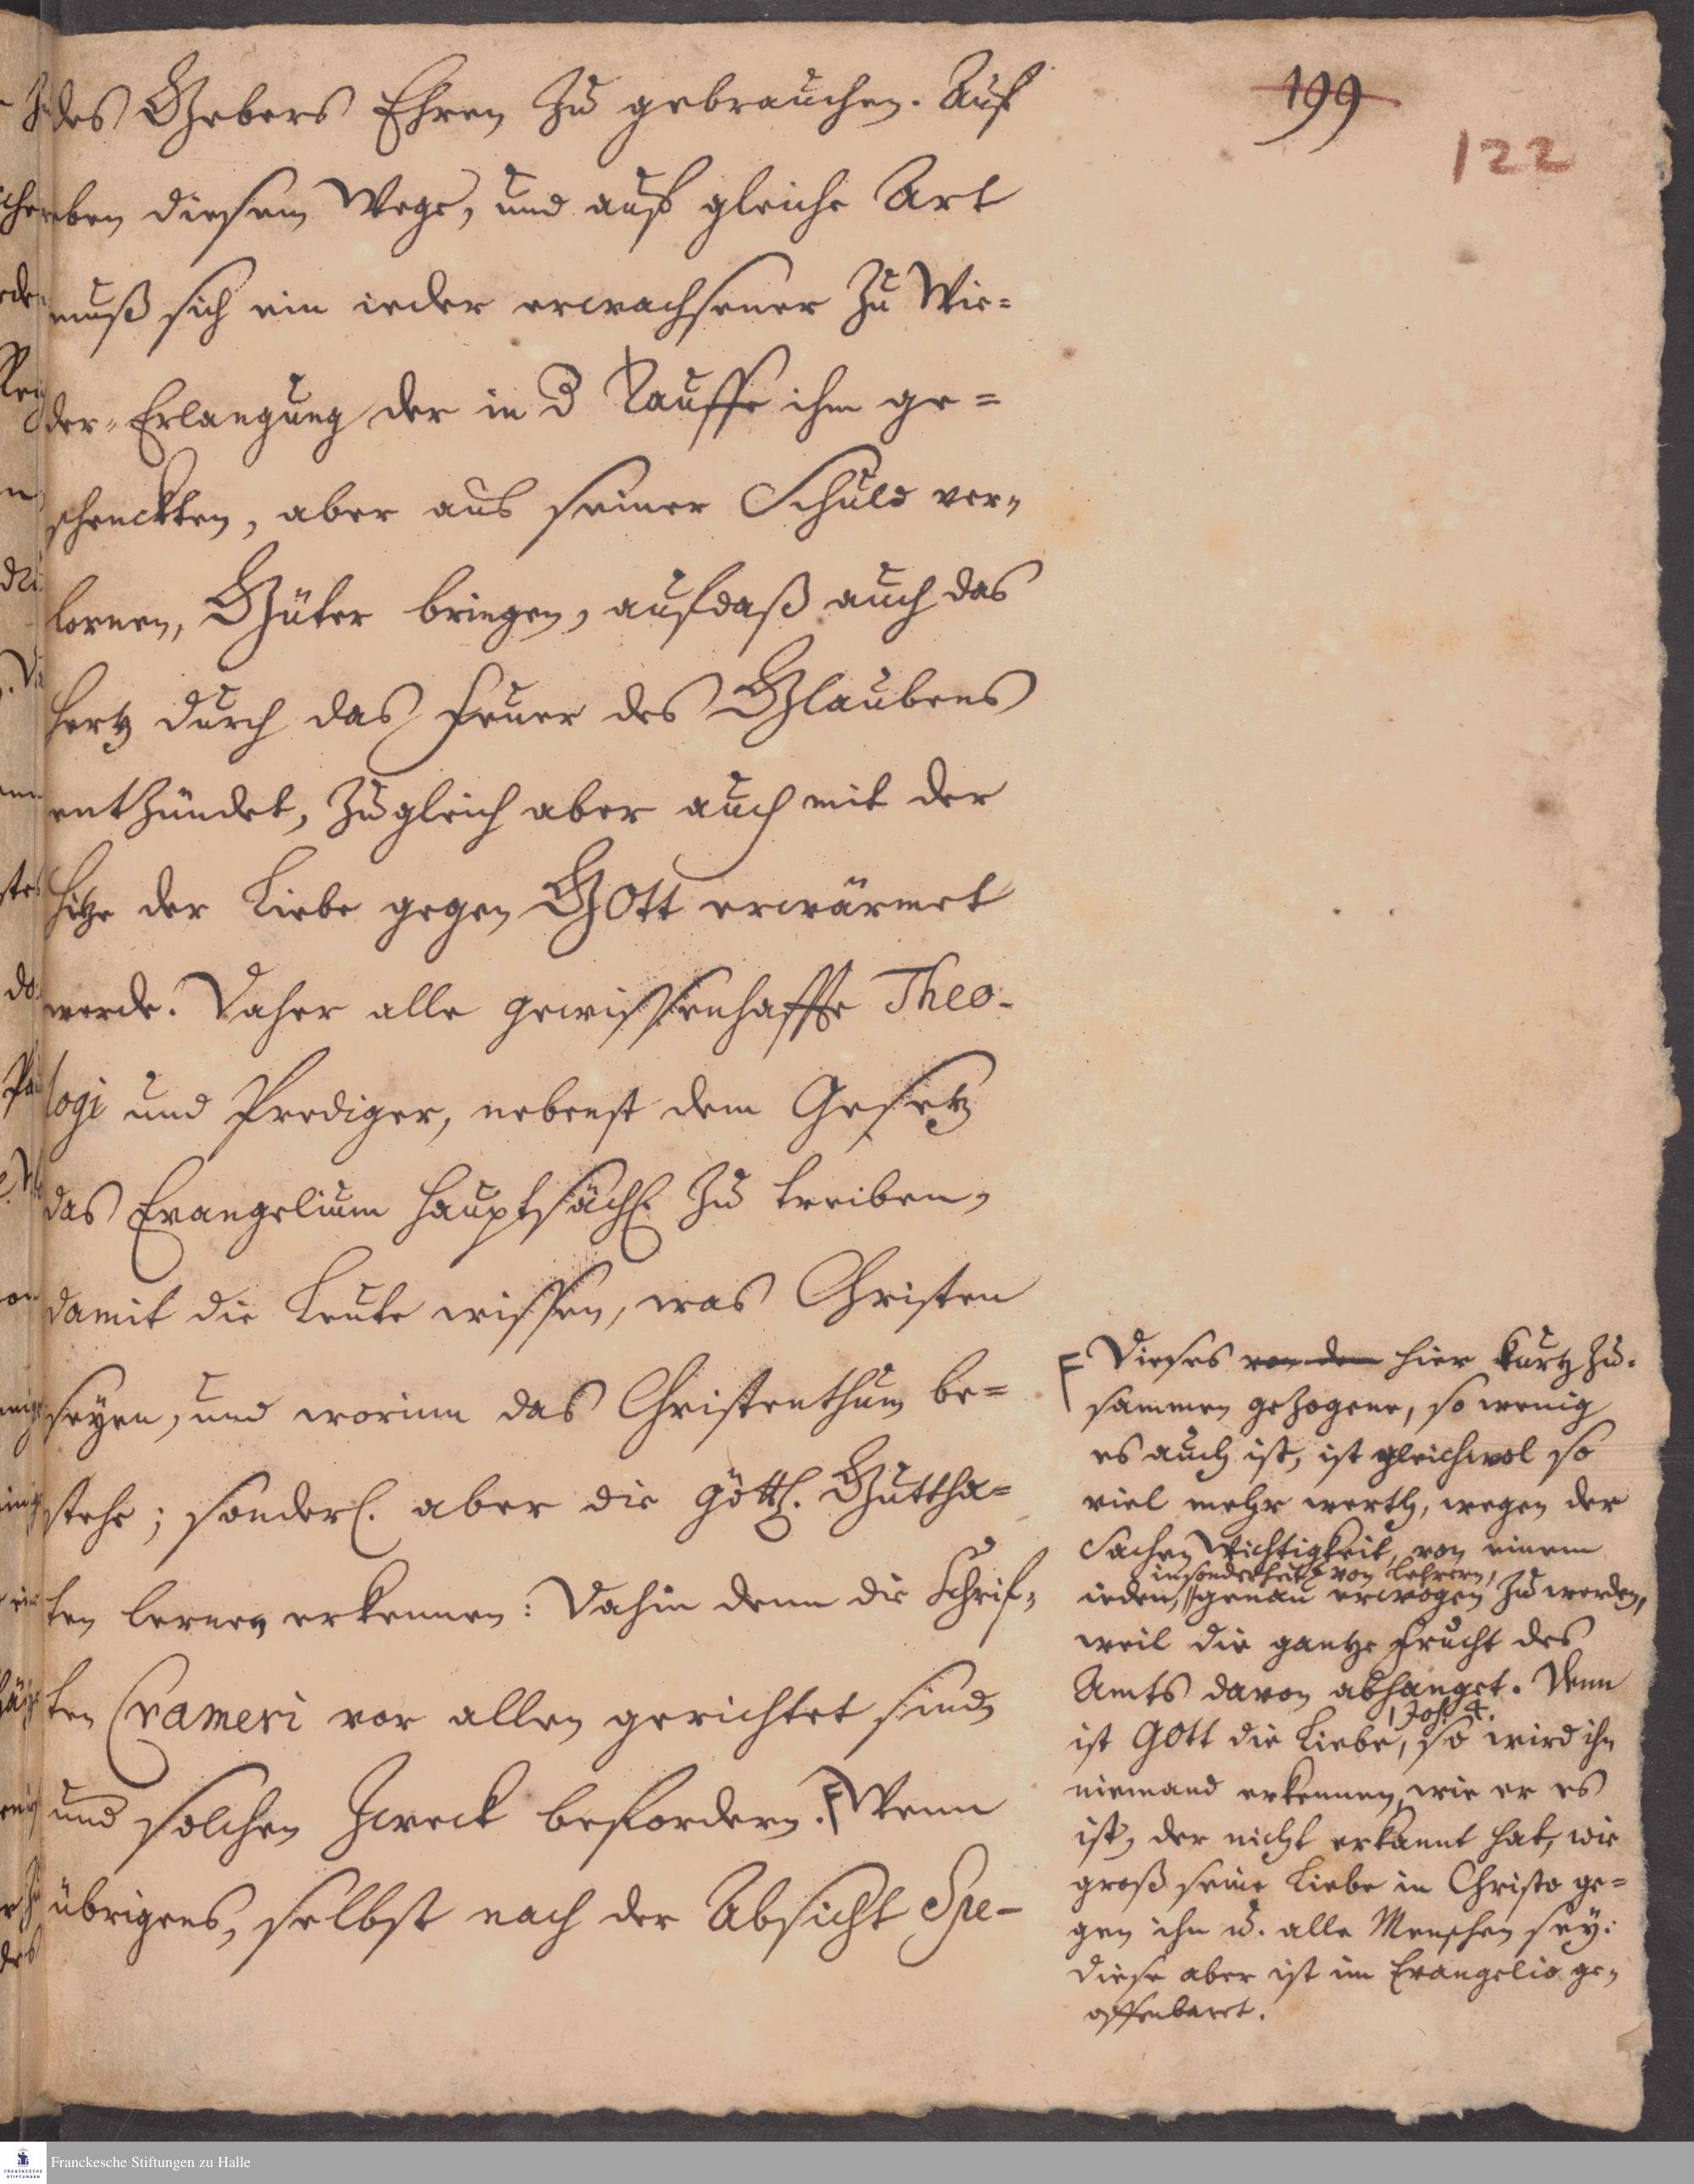 199
122
des Gebers Ehren zu gebrauchen. Auf
eben diesem Wege, und auf gleiche Art
muß sich ein ieder erwachsener zu Wie=
der-Erlangung der in d Tauffe ihm ge=
schenckten, aber aus seiner Schuld ver=
lornen, Güter bringen, aufdaß auch das
Hertz durch das Feuer des Glaubens
entzündet, zugleich aber auch mit der
Hitze der Liebe gegen GOtt erwärmet
werde. Daher alle gewissenhaffte Theo-
logi und Prediger, nebenst dem Gesetz
das Evangelium hauptsächl. zu treiben,
damit die Leute wissen, was Christen
seyen, und worinn das Christenthum be=
stehe; sonderl. aber die göttl. Guttha=
ten lernen erkennen: Dahin denn die Schrif=
ten Crameri vor allen gerichtet sind
und solchen Zweck befordern. F Wenn
übrigens, selbst nach der Absicht Spe-
F Dieses von dem hier kurtz zu=
sammen gezogene, so wenig
es auch ist, ist gleichwol so
viel mehr werth, wegen der
Sachen Wichtigkeit, von einem
insonderheit von Lehrern,
ieden, genau erwogen zu werden,
weil die gantze Frucht des
Amts davon abhanget. Denn
1 Joh: 4.
ist GOtt die Liebe, so wird ihn
niemand erkennen, wie er es
ist, der nicht erkannt hat, wie
groß seine Liebe in Christo ge=
gen ihn u. alle Menschen sey:
diese aber ist im Evangelio ge=
offenbaret.
Franckesche Stiftungen zu Halle